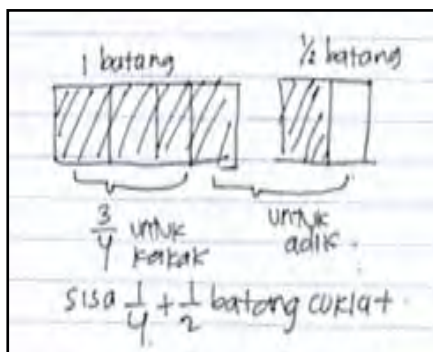 1 batang ½ batang
3/4 untuk kakak
untuk adik.
sisa 1/4 + 1/2 batang cuklat.